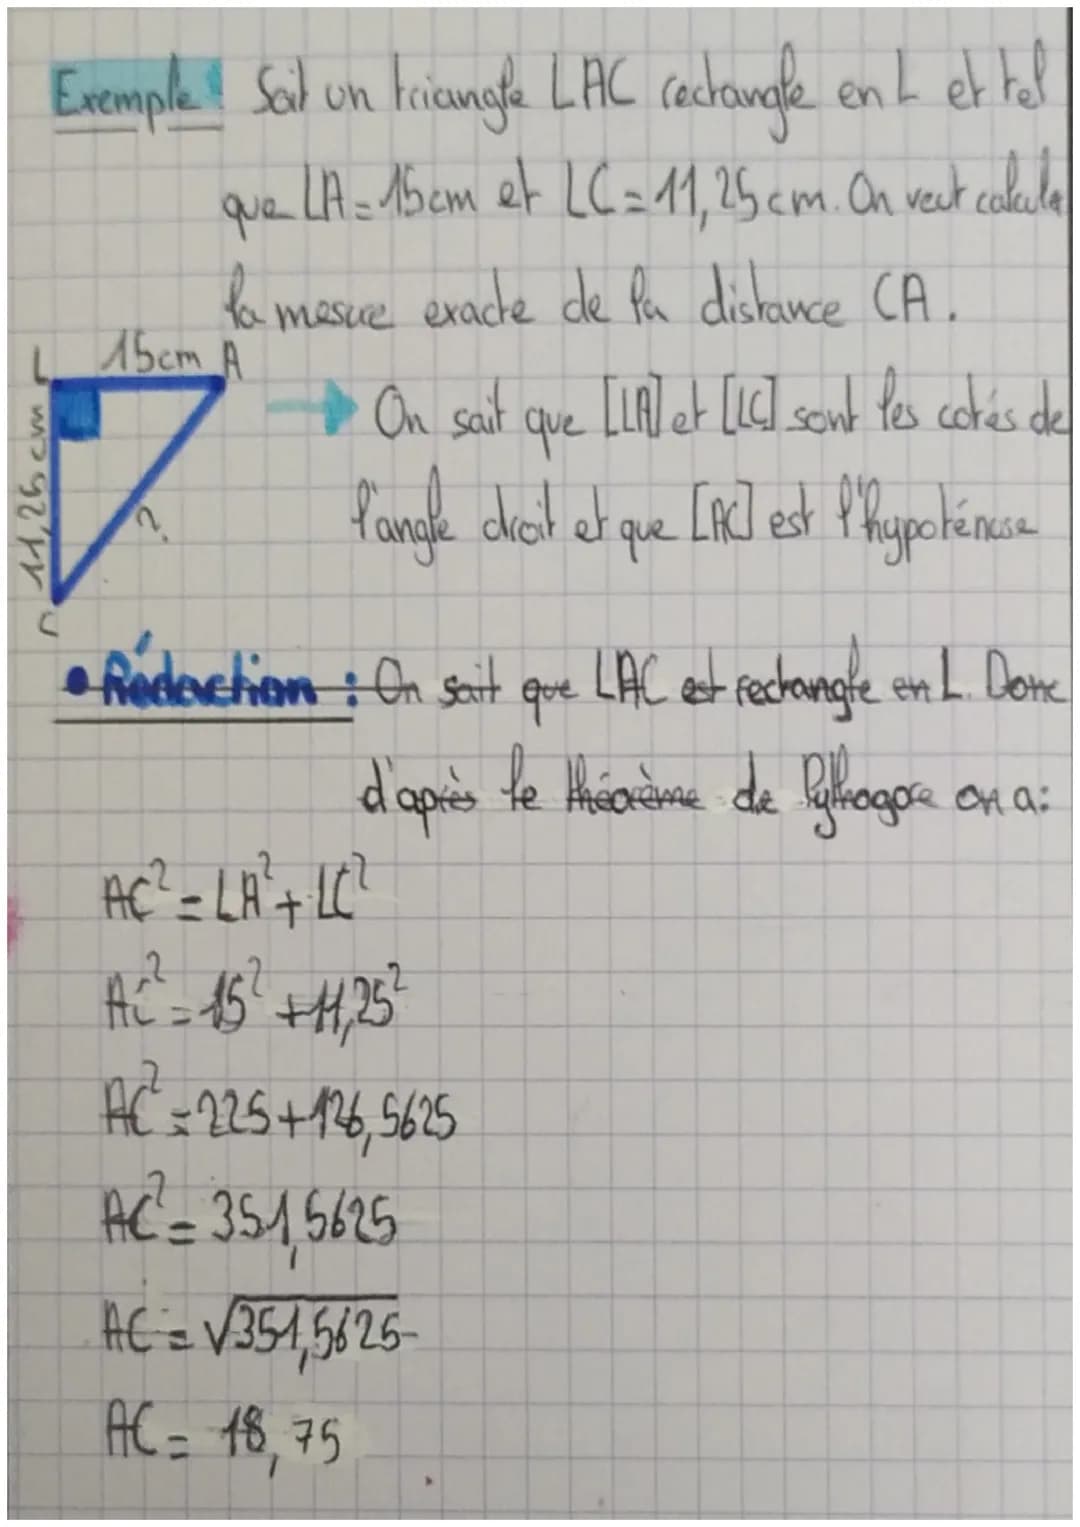 Exemple : Soit un triangle LAC rectangle en L et tel
que LA = 15cm et LC = 11,25cm. On veut calculer
la mesure exacte de la distance CA.
L 15cm A
11,25cm
?
C
→ On sait que [LA] et [LC] sont les cotés de
l'angle droit et que [AC] est l'hypoténuse
• Rédaction : On sait que LAC est rectangle en L. Donc
d'après le théorème de Pythagore on a:
AC² = LA² + LC²
AC² = 15² + 11,25²
AC² = 225 + 126,5625
AC² = 351,5625
AC = √351,5625
AC = 18,75